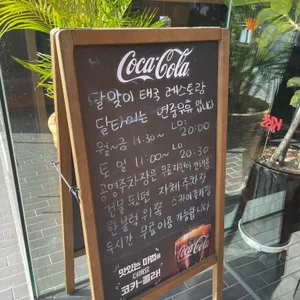 Coca-Cola
달맞이 태국 레스토랑
달타이는 연중무휴 입니다
월~금 11:30~ LO: 20:00
토 일 11:00~ LO: 20:30
공영주차장은 무료
건물 뒷편 자체 주차장
한블럭 위쪽
두시간 무료 이용 가능합니다
Coca-Cola
맛있는 마법을
더해요
코카-콜라!